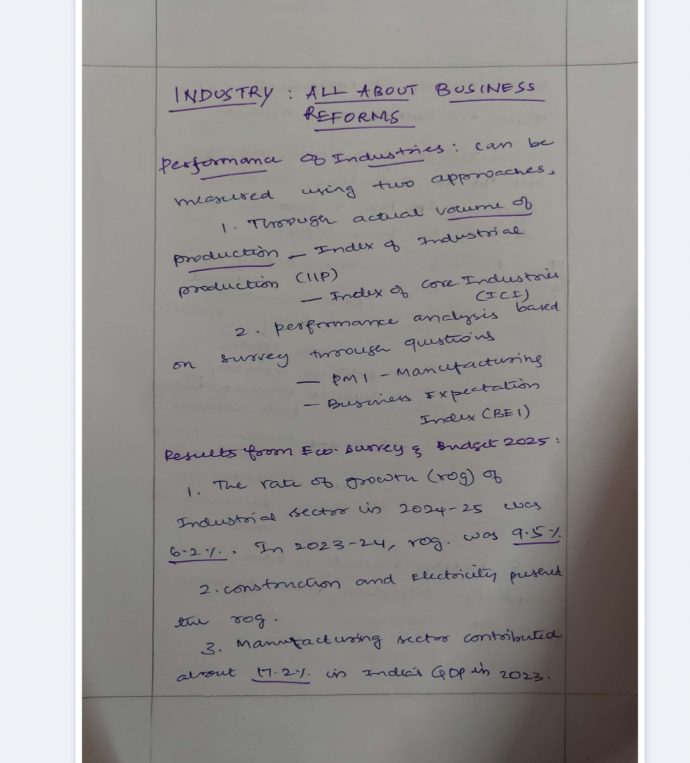 INDUSTRY : ALL ABOUT BUSINESS
REFORMS
Performance of Industries : can be
measured using two approaches,
1. Through actual volume of
production - Index of Industrial
production (IIP)
- Index of core Industries
(ICI)
2. performance analysis based
on survey through questions
- PMI - Manufacturing
- Business Expectation
Index (BEI)
Results from Eco. survey & Budget 2025 :
1. The rate of growth (rog) of
Industrial sector in 2024-25 was
6.2%. In 2023-24, rog. was 9.5%
2. construction and Electricity pushed
the rog.
3. Manufacturing sector contributed
about 17.2% in India's GDP in 2023.